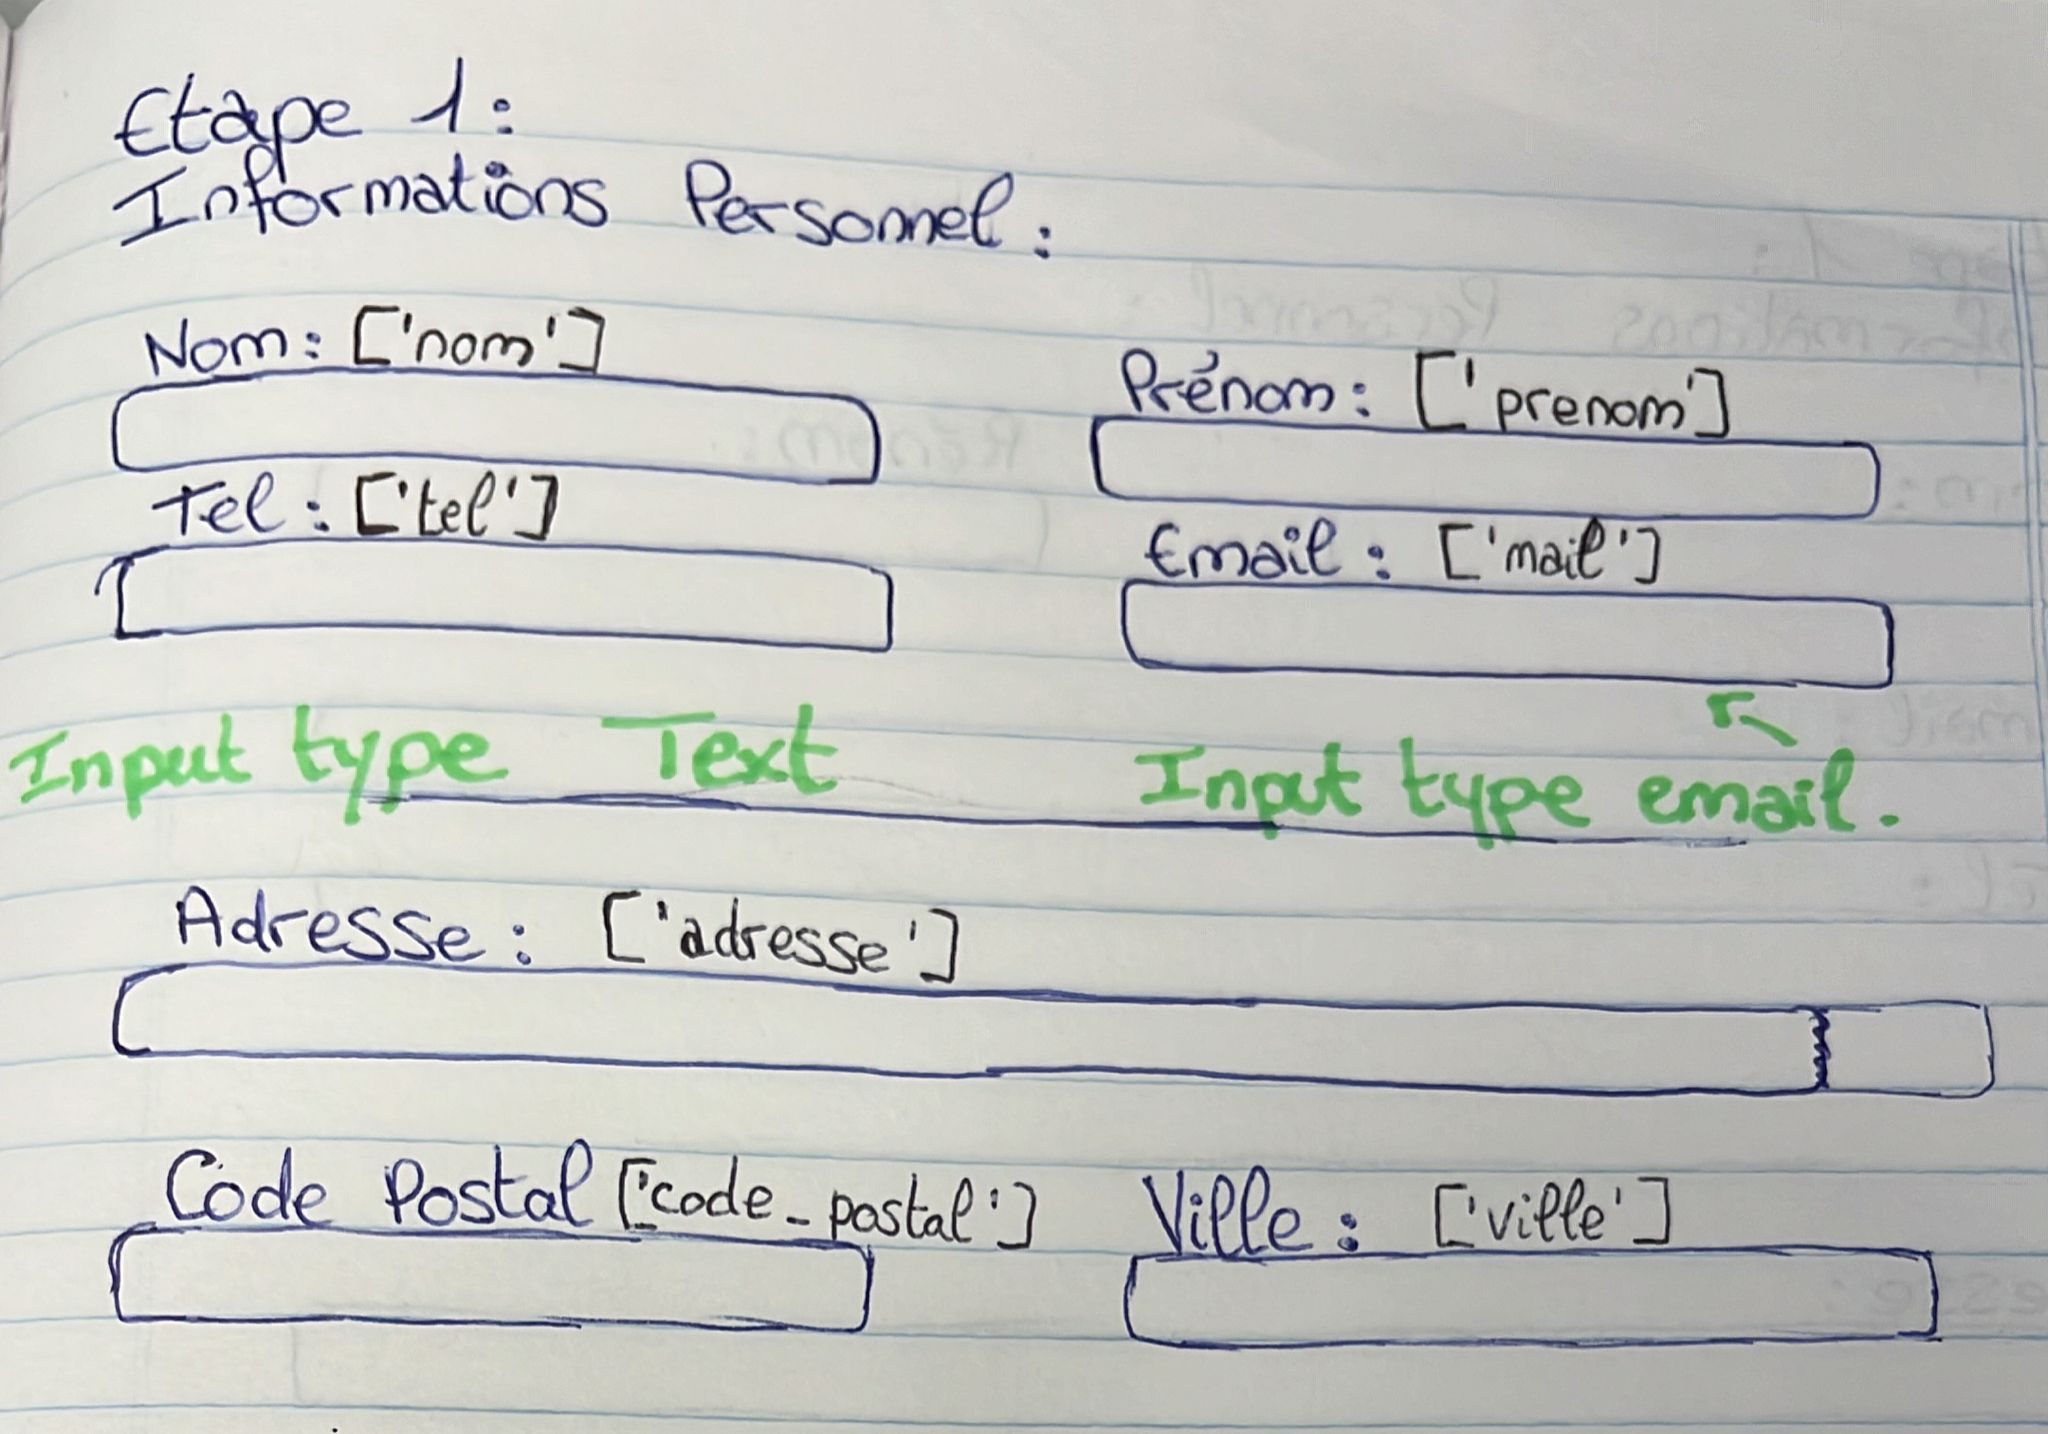 Etape 1:
Informations Personnel:
Nom: ['nom']
Prénom: ['prenom']
Tel: ['tel']
Email: ['mail']
Input type Text
Input type email.
Adresse: ['adresse']
Code Postal ['code_postal']
Ville: ['ville']